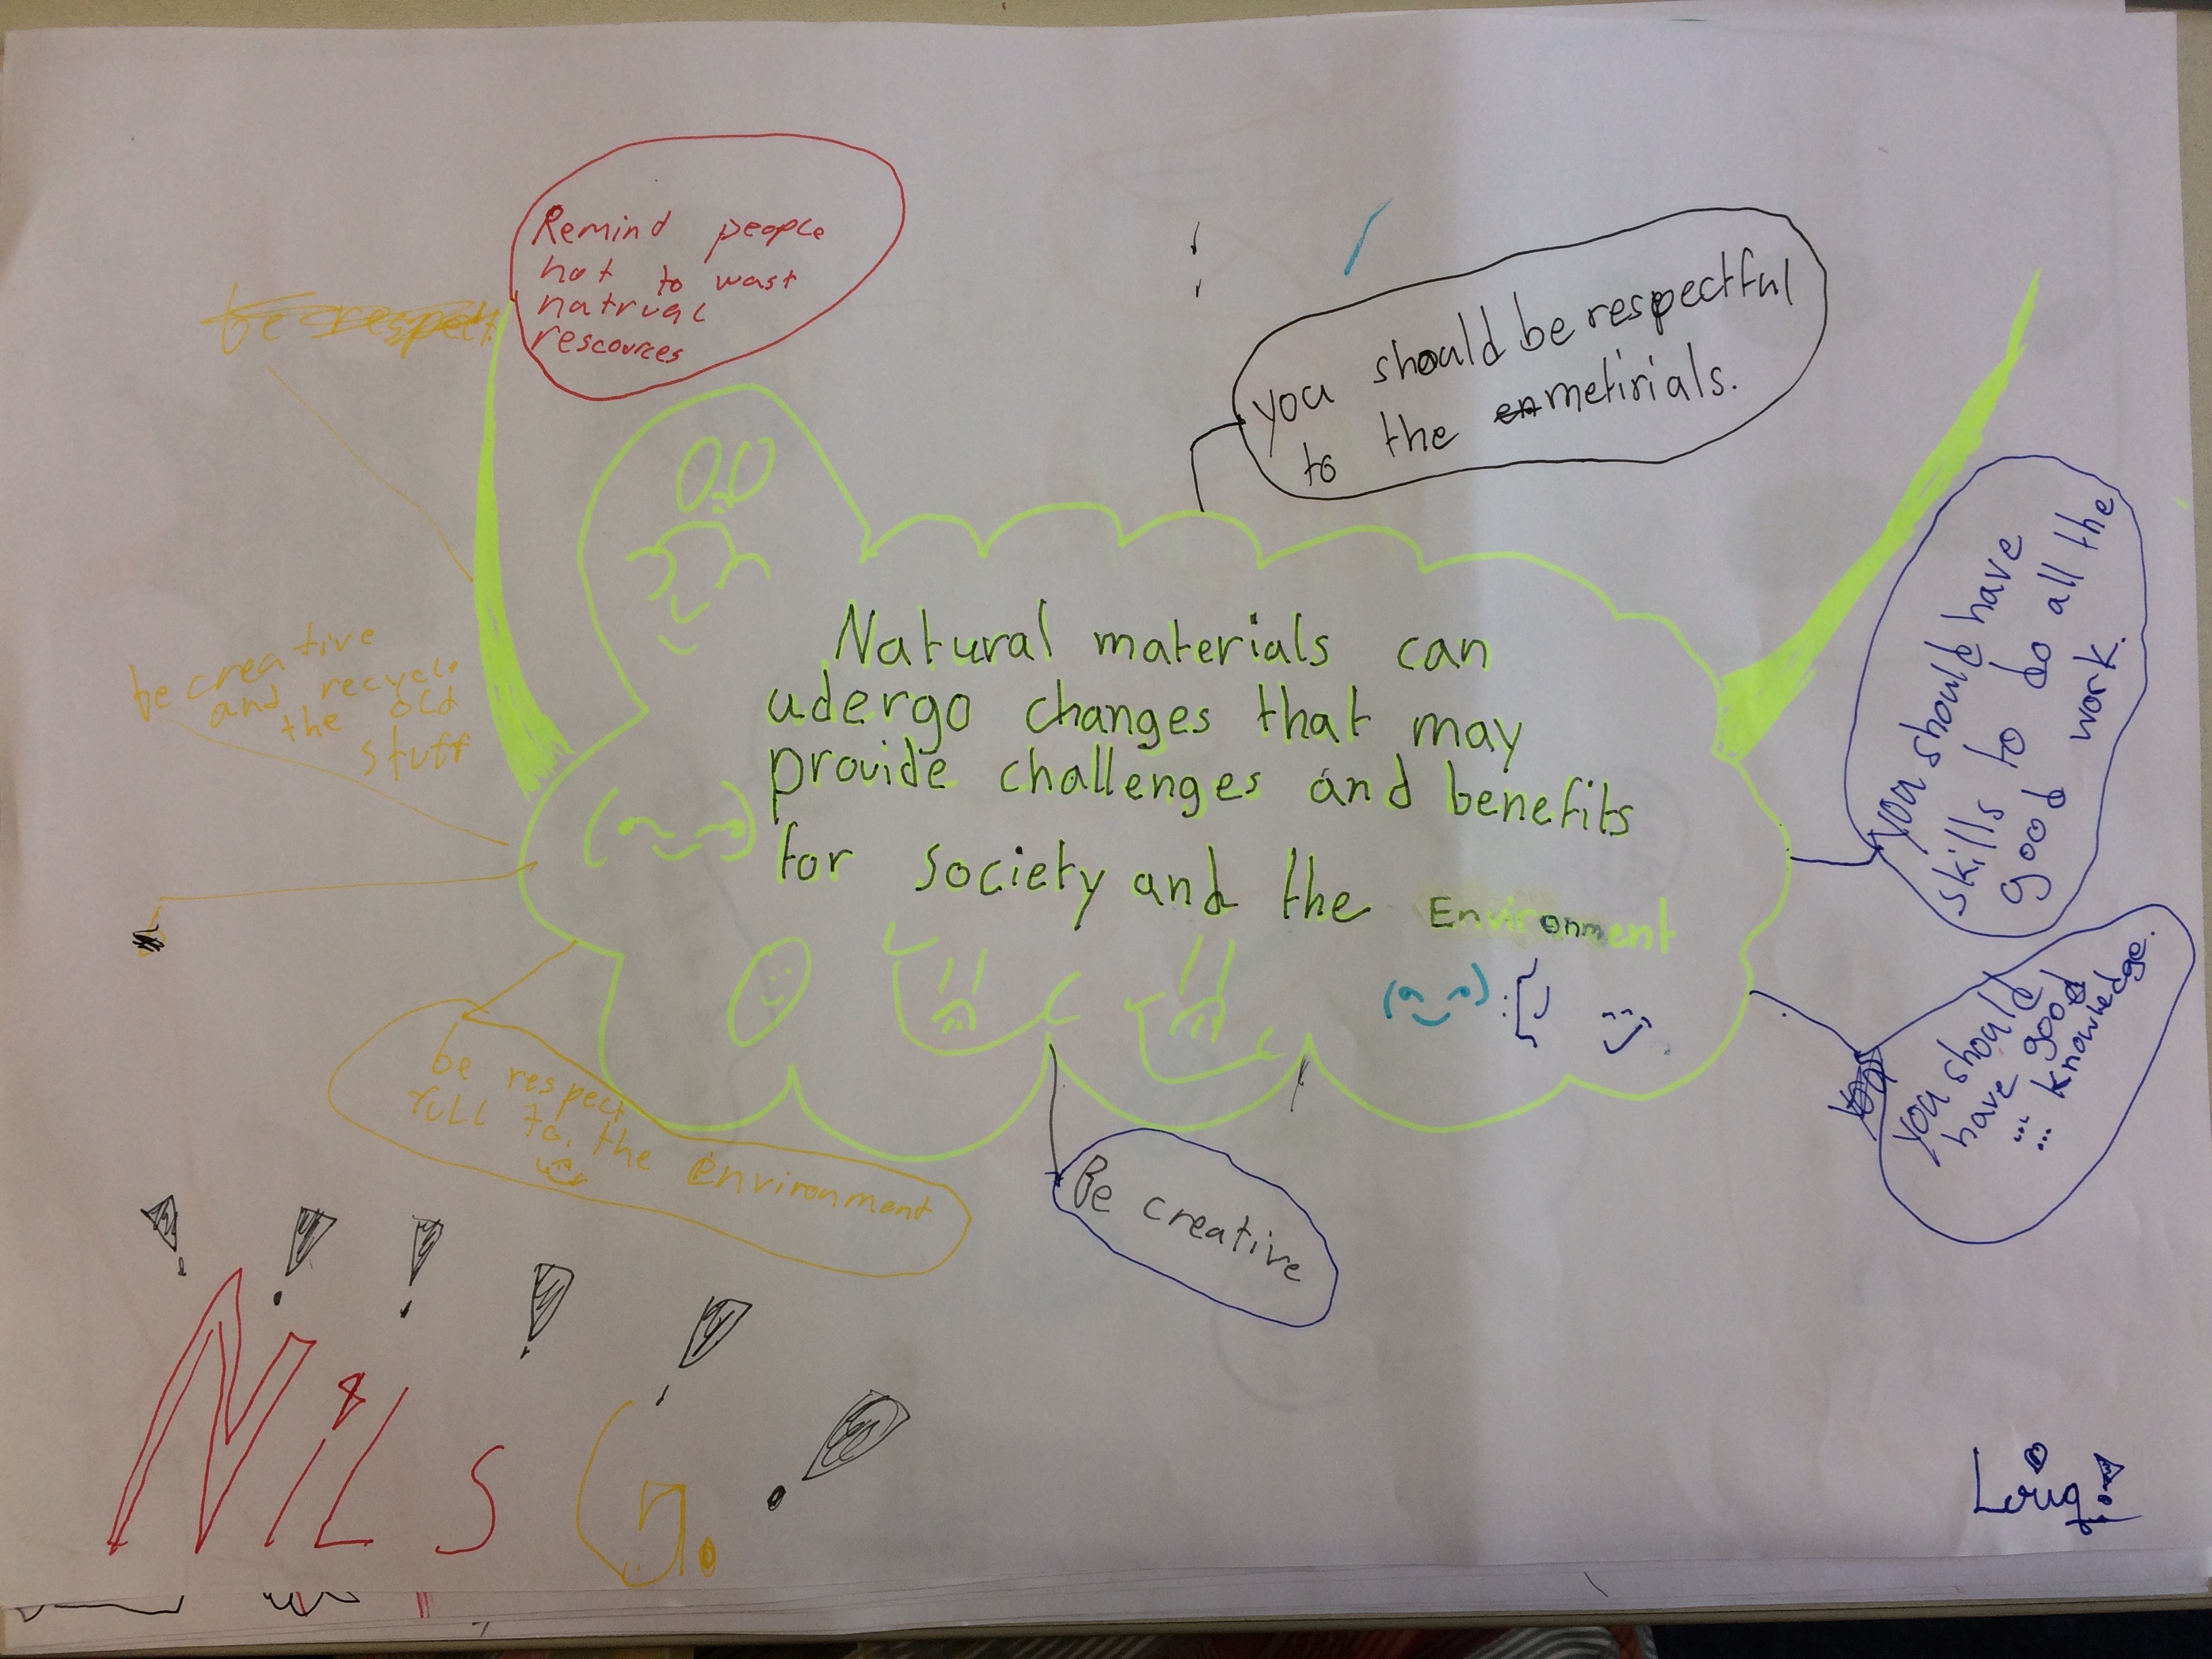 Remind people
not to wast
natrual
rescources
be respect
you should be respectful
to the en metirials.
Natural materials can
udergo changes that may
provide challenges and benefits
for society and the Environment
be creative
and recycle
the old
stuff
you should have
skills to do all the
good work.
you should
have good
... knowledge.
be respect
full to. the environment
Be creative
Nils G.